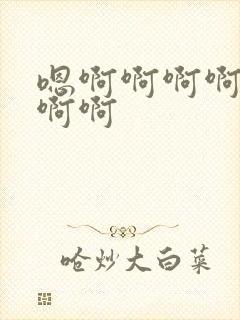 嗯啊啊啊啊
啊啊
呛炒大白菜